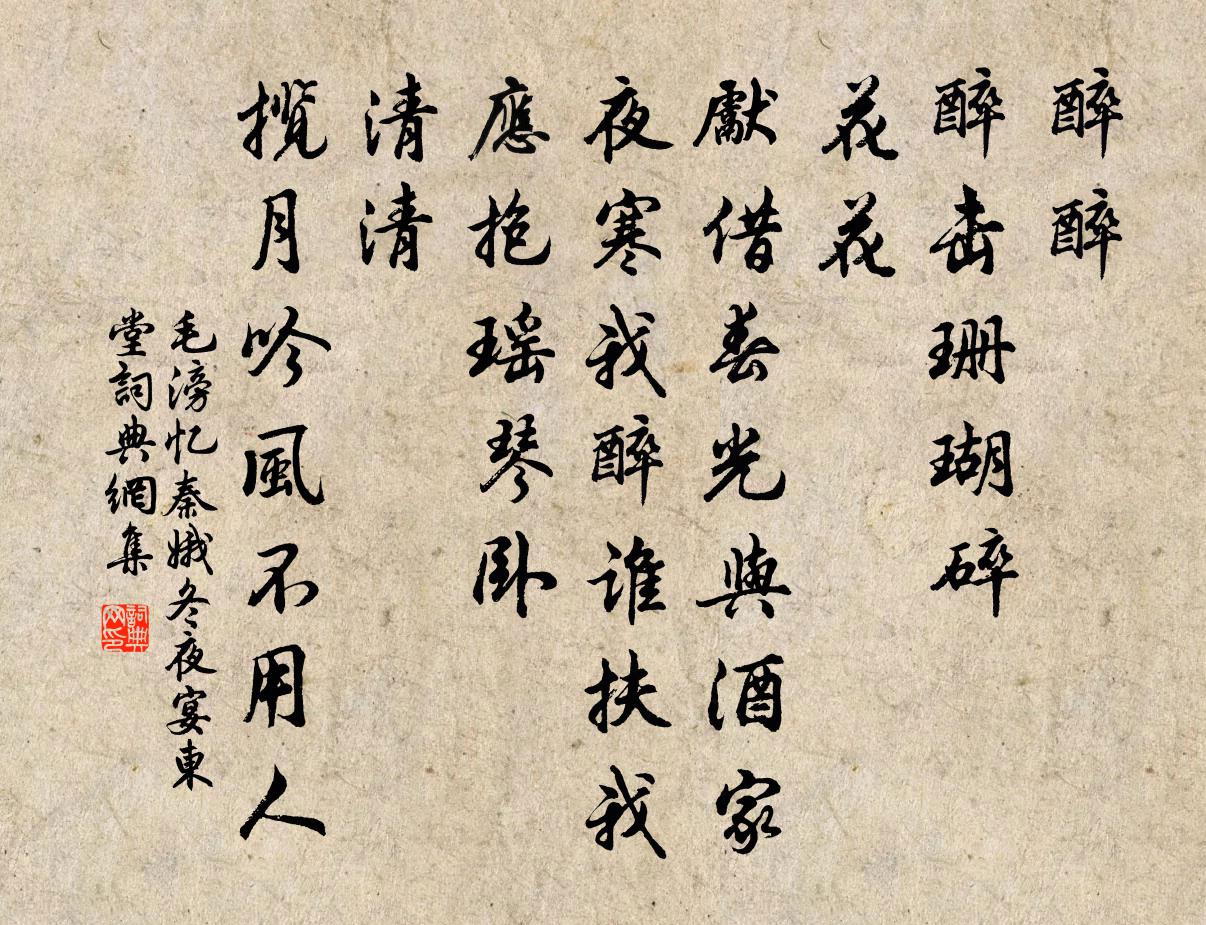 醉醉
醉击珊瑚碎
花花
獻借春光與酒家
夜寒我醉誰扶我
應抱瑶琴卧
清清
揽月吟風不用人
毛滂忆秦娥冬夜宴東
堂詞典網集
詞典
网印